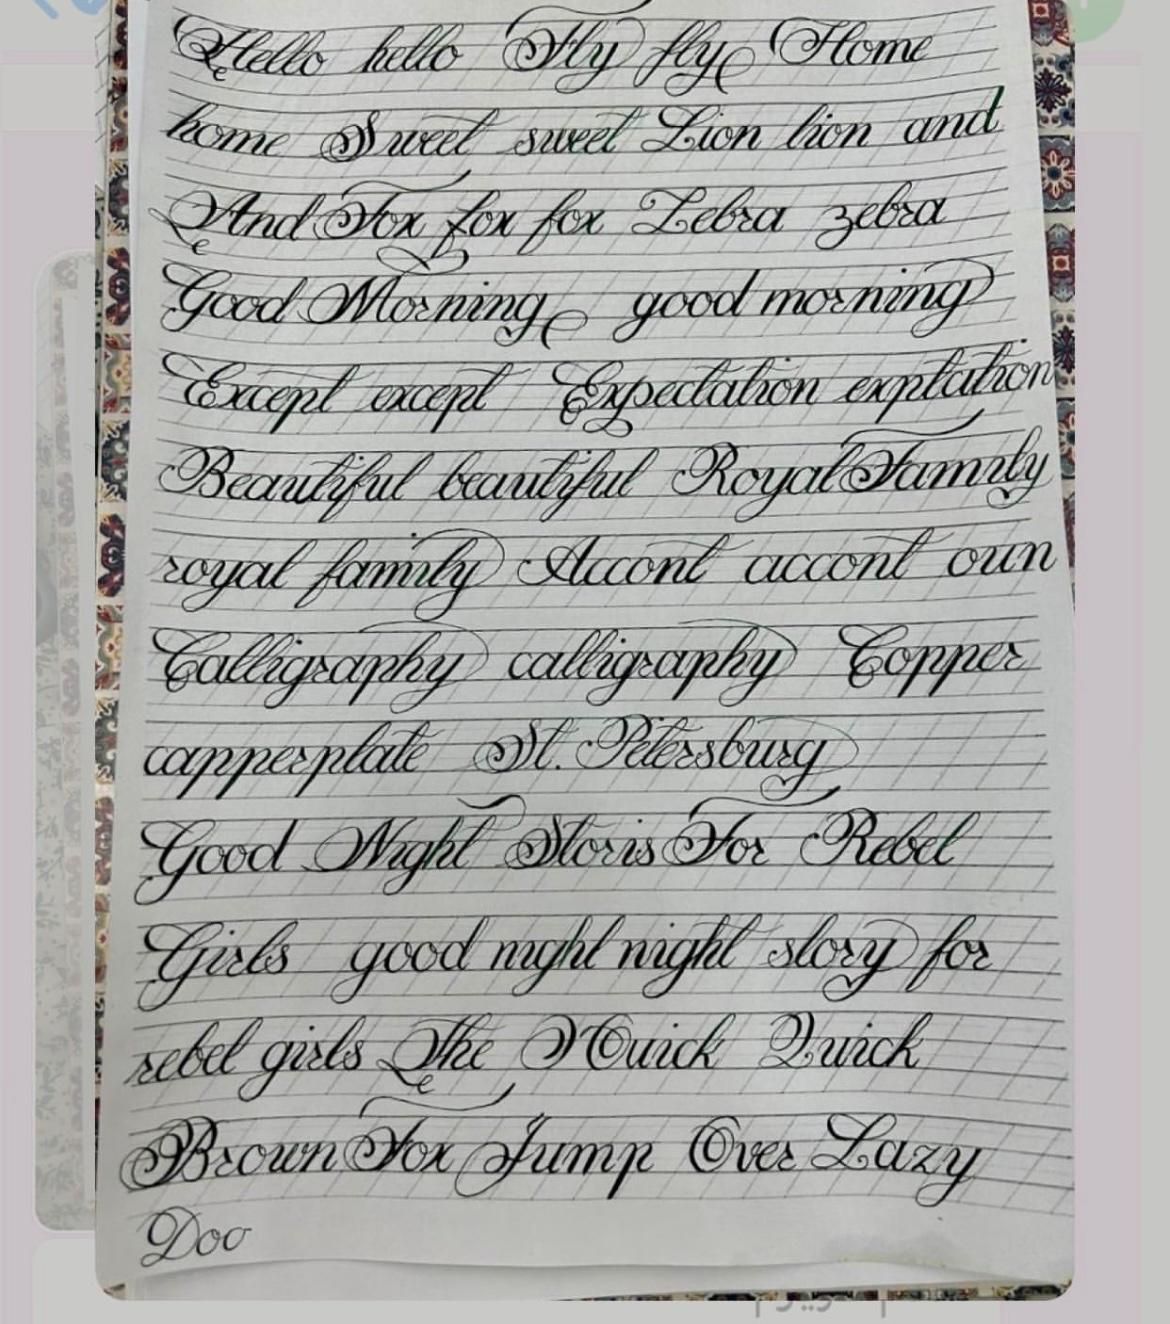 Hello hello Fly fly Home
home Sweet sweet Lion lion and
And Fox fox fox Zebra zebra
Good Morning good morning
Except except Expectation exptation
Beautiful beautiful Royal Family
royal family Accont accont oun
Calligraphy calligraphy Copper
capperplate St. Petersburg
Good Night Storis For Rebel
Girls good night night story for
rebel girls The Quick Quick
Brown Fox Jump Over Lazy
Doo